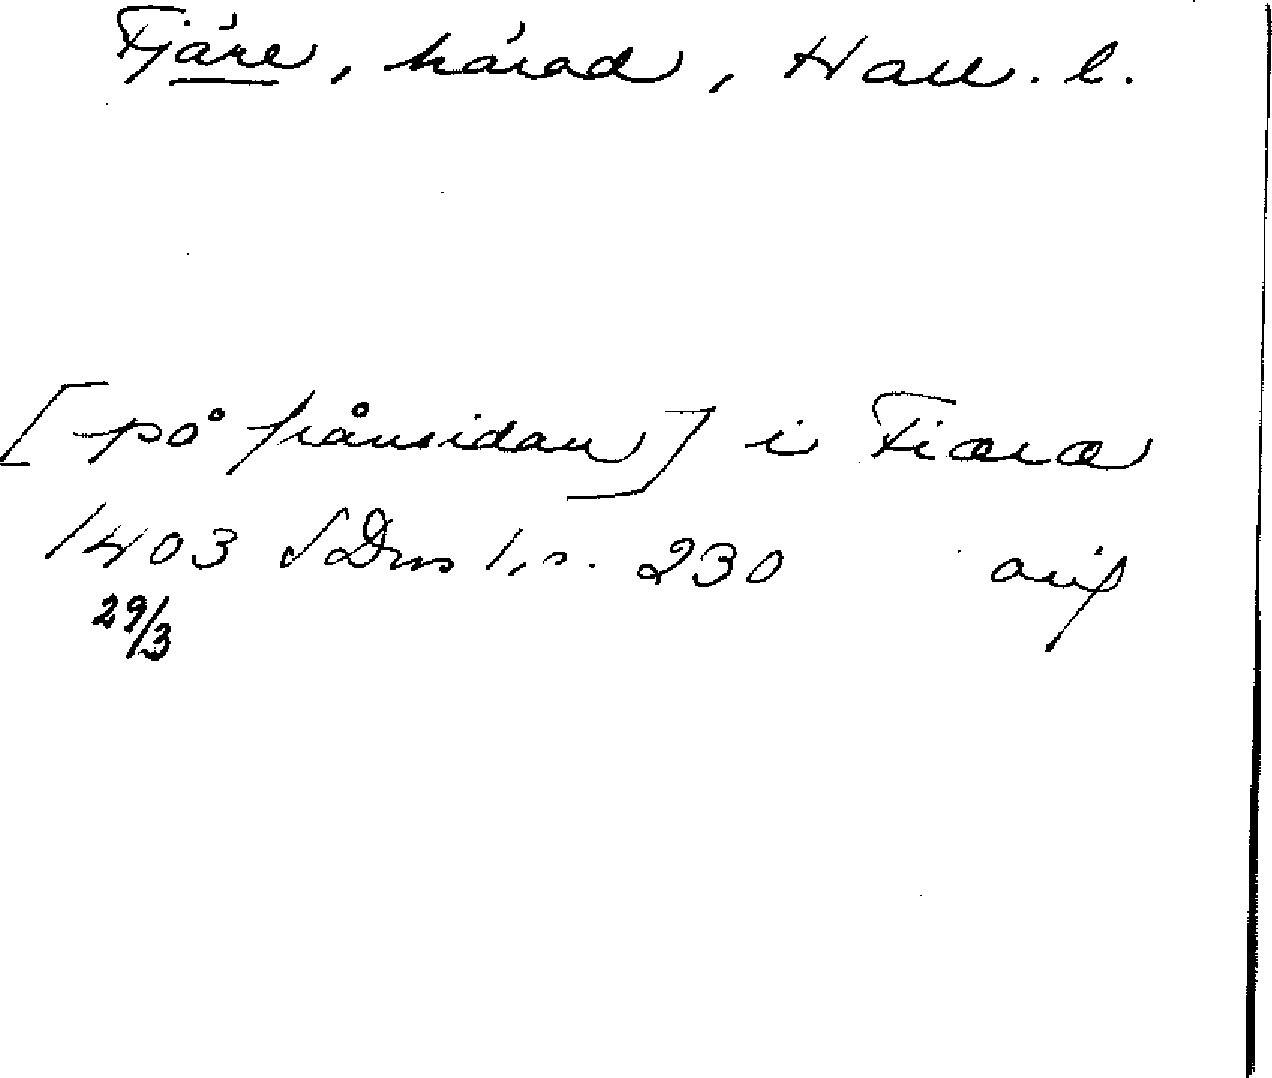 Fjäre, härad, Hall. l.
[på frånsidan] i Fiæra
1403 SDns 1, s. 230 avip
29/3